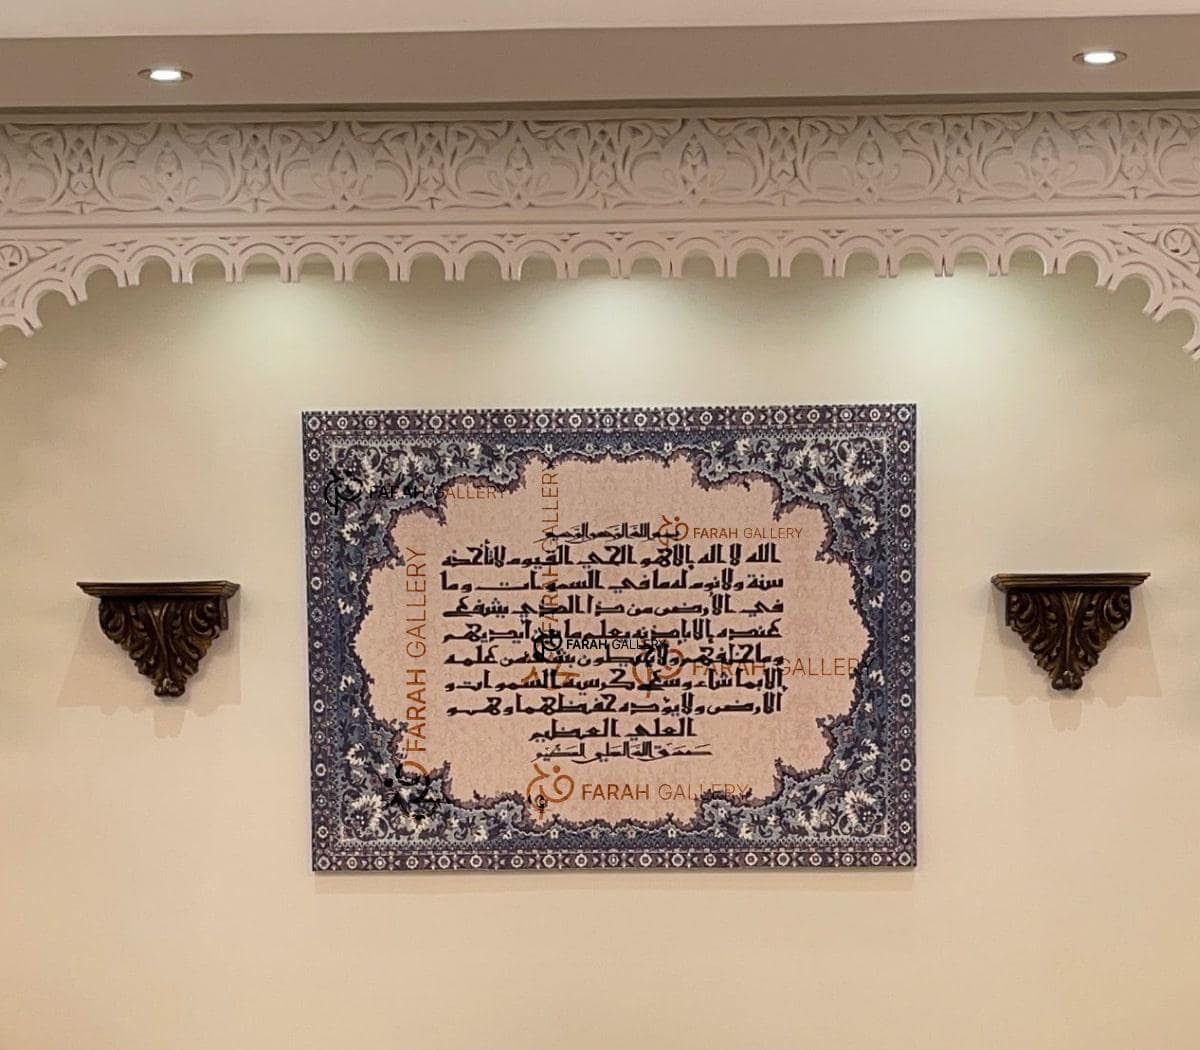 بسم الله الرحمن الرحيم
الله لا اله إلا هو الحي القيوم لا تأخذه
سنة ولا نوم له ما في السموات وما
في الأرض من ذا الذي يشفع
عنده إلا بإذنه يعلم ما بين أيديهم
وما خلفهم ولا يحيطون بشيء من علمه
إلا بما شاء وسع كرسيه السموات و
الأرض ولا يؤده حفظهما وهو
العلي العظيم
صدق الله العلي العظيم
FARAH GALLERY
FARAH GALLERY
FARAH GALLERY
FARAH GALLERY
FARAH GALLERY
FARAH GALLERY
FARAH GALLERY